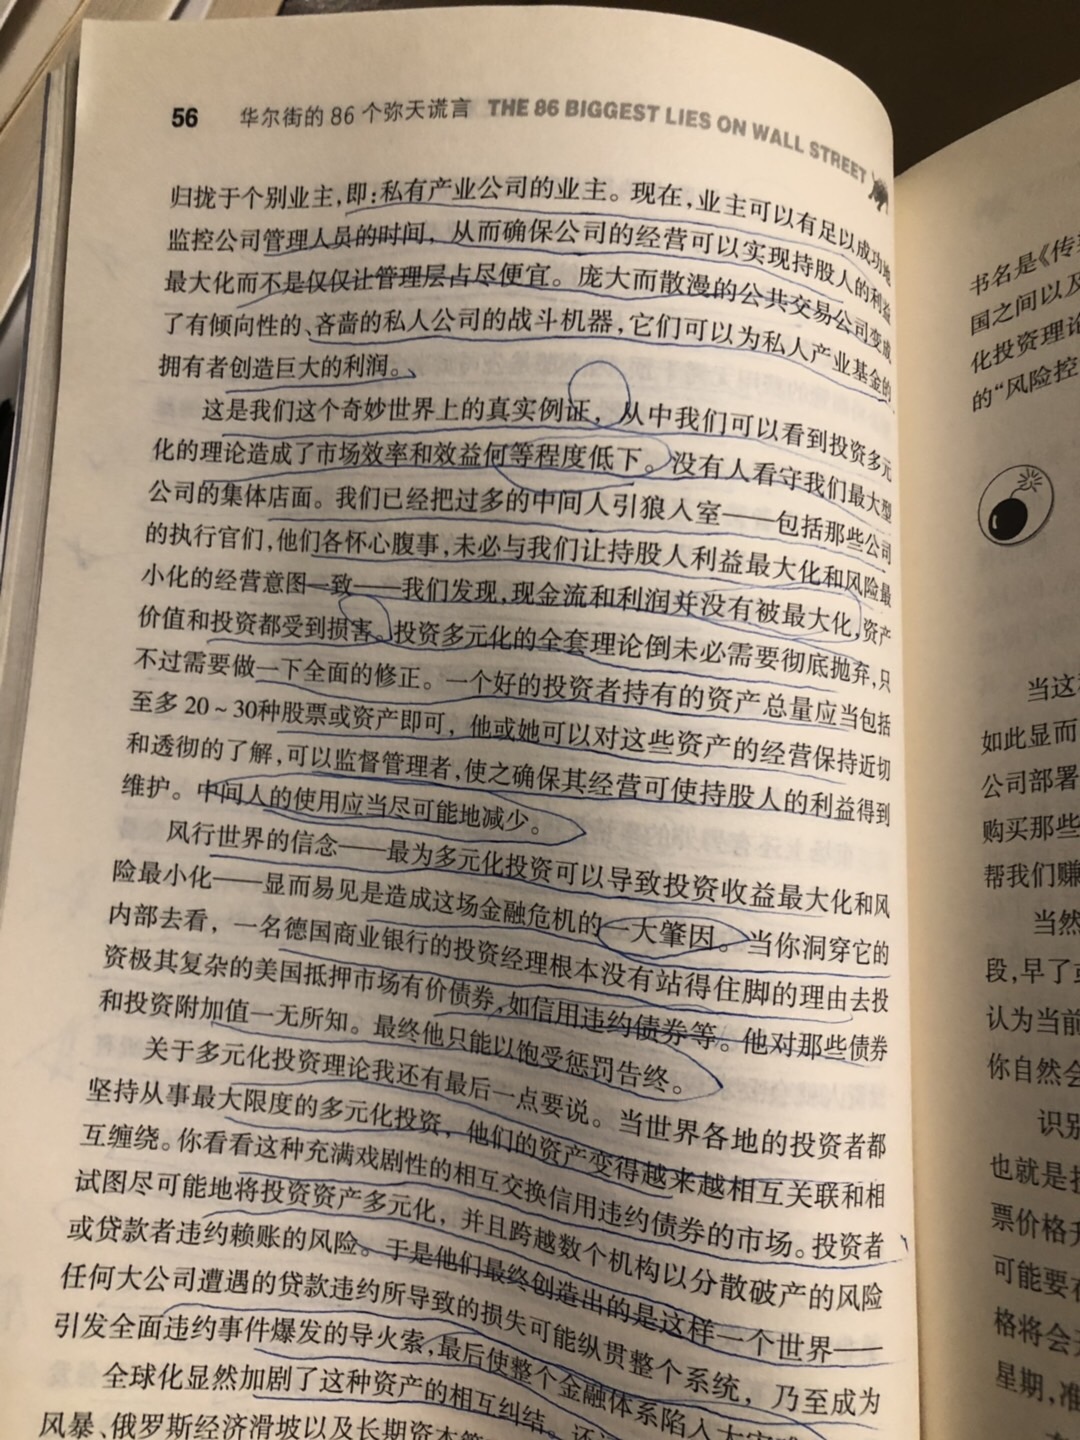 56 华尔街的86个弥天谎言 THE 86 BIGGEST LIES ON WALL STREET
归拢于个别业主,即:私有产业公司的业主。现在,业主可以有足以成功地
监控公司管理人员的时间,从而确保公司的经营可以实现持股人的利益
最大化而不是仅仅让管理层占尽便宜。庞大而散漫的公共交易公司变成
了有倾向性的、吝啬的私人公司的战斗机器,它们可以为私人产业基金的
拥有者创造巨大的利润。
这是我们这个奇妙世界上的真实例证,从中我们可以看到投资多元
化的理论造成了市场效率和效益何等程度低下。没有人看守我们最大型
公司的集体店面。我们已经把过多的中间人引狼入室——包括那些公司
的执行官们,他们各怀心腹事,未必与我们让持股人利益最大化和风险最
小化的经营意图一致——我们发现,现金流和利润并没有被最大化,资产
价值和投资都受到损害。投资多元化的全套理论倒未必需要彻底抛弃,只
不过需要做一下全面的修正。一个好的投资者持有的资产总量应当包括
至多20~30种股票或资产即可,他或她可以对这些资产的经营保持近切
和透彻的了解,可以监督管理者,使之确保其经营可使持股人的利益得到
维护。中间人的使用应当尽可能地减少。
风行世界的信念——最为多元化投资可以导致投资收益最大化和风
险最小化——显而易见是造成这场金融危机的一大肇因。当你洞穿它的
内部去看,一名德国商业银行的投资经理根本没有站得住脚的理由去投
资极其复杂的美国抵押市场有价债券,如信用违约债券等。他对那些债券
和投资附加值一无所知。最终他只能以饱受惩罚告终。
关于多元化投资理论我还有最后一点要说。当世界各地的投资者都
坚持从事最大限度的多元化投资,他们的资产变得越来越相互关联和相
互缠绕。你看看这种充满戏剧性的相互交换信用违约债券的市场。投资者
试图尽可能地将投资资产多元化,并且跨越数个机构以分散破产的风险
或贷款者违约赖账的风险。于是他们最终创造出的是这样一个世界——
任何大公司遭遇的贷款违约所导致的损失可能纵贯整个系统,乃至成为
引发全面违约事件爆发的导火索,最后使整个金融体系陷入大灾难
全球化显然加剧了这种资产的相互纠结。还
风暴、俄罗斯经济滑坡以及长期资本
书名是《传
国之间以及
化投资理论
的“风险控
当这
如此显而
公司部署
购买那些
帮我们赚
当然
段,早了
认为当前
你自然会
识别
也就是
票价格
可能要在
格将会
星期,准